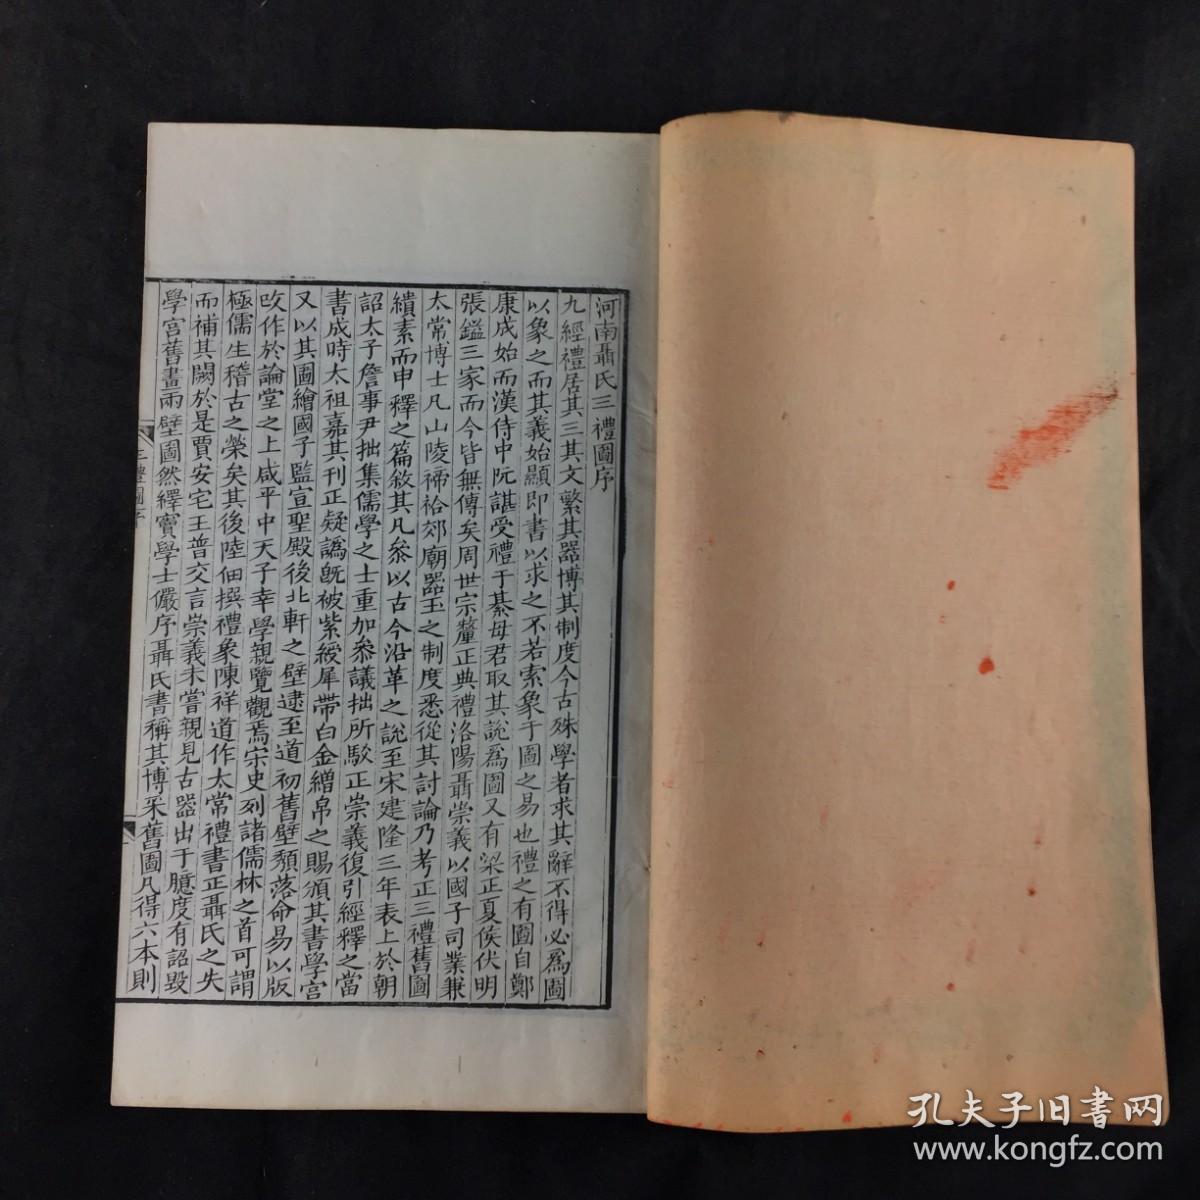 河南聶氏三禮圖序
九經禮居其三其文繁其器博其制度今古殊學者求其辭不得必爲圖
以象之而其義始顯即書以求之不若索象于圖之易也禮之有圖自鄭
康成始而漢侍中阮諶受禮于綦母君取其說爲圖又有梁正夏侯伏明
張鎰三家而今皆無傳矣周世宗釐正典禮洛陽聶崇義以國子司業兼
太常博士凡山陵禘祫郊廟器玉之制度悉從其討論乃考正三禮舊圖
繢素而申釋之篇敘其凡叅以古今沿革之說至宋建隆三年表上於朝
詔太子詹事尹拙集儒學之士重加叅議拙所駮正崇義復引經釋之當
書成時太祖嘉其刊正疑譌旣被紫綬犀帶白金繒帛之賜頒其書學宫
又以其圖繪國子監宣聖殿後北軒之壁逮至道初舊壁頽落命易以版
改作於論堂之上咸平中天子幸學親覽觀焉宗史列諸儒林之首可謂
極儒生稽古之榮矣其後陸佃撰禮象陳祥道作太常禮書正聶氏之失
而補其闕於是賈安宅王普交言崇義未嘗親見古器出于臆度有詔毀
學宫舊畫兩壁圖然繹竇學士儼序聶氏書稱其博采舊圖凡得六本則
三禮圖序
孔夫子旧书网
www.kongfz.com